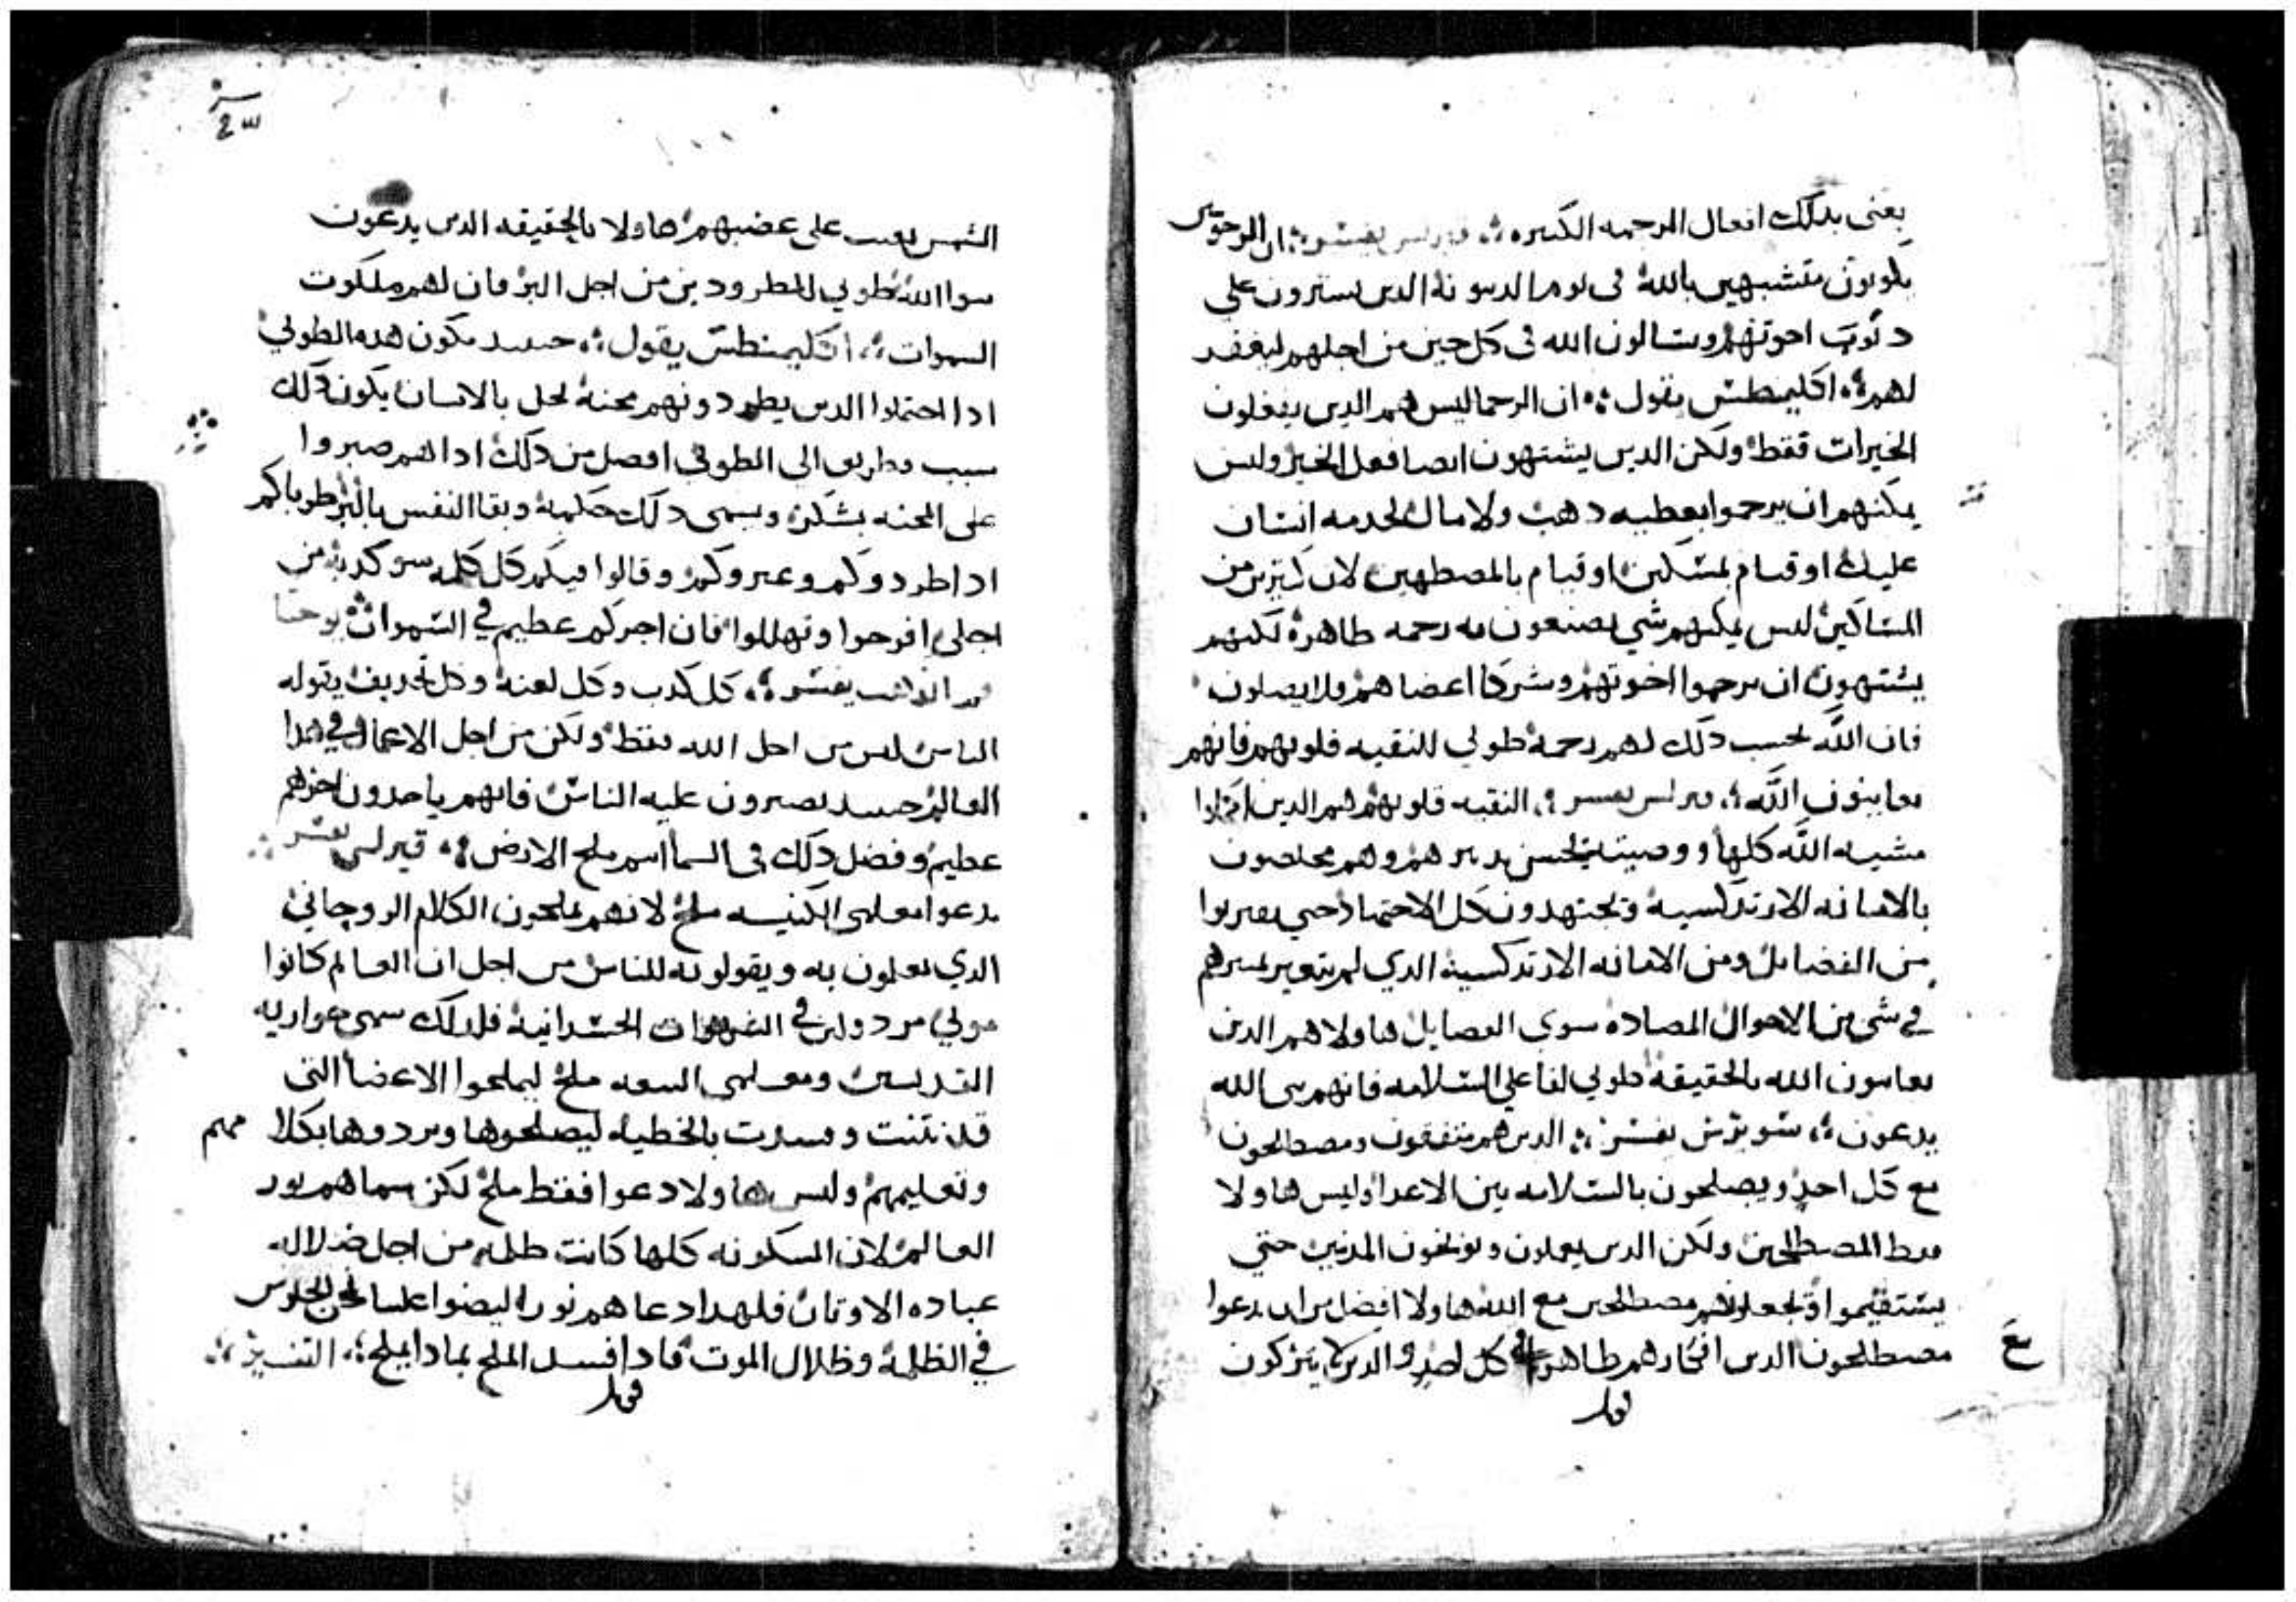 يعنى بدلك افعال الرحمه الكبيره ؞ يفسر ؞ ان المرحومين
يكونون متشبهين بالله فى يوم الدينونة الدين يسترون على
دنوب اخوتهم ويسالون الله فى كل حين من اجلهم ليغفر
لهم ؞ اكليمنطس يقول ؞ ان الرحما ليس هم الدين يفعلون
الخيرات فقط ولكن الدين يشتهون ايضا فعل الخير وليس
يمكنهم ان يرحموا بعطيه دهب ولا مال لخدمه انسان
عليل او قيام بمسكين او قيام بالمضطهين لان كتيرين من
المساكين ليس يمكنهم شي يصنعون به رحمه طاهرة لكنهم
يشتهون ان يرحموا اخوتهم وشركا اعضاهم ولا يصلون
فان الله يحسب دلك لهم رحمة طوبي للنقيه قلوبهم فانهم
يعاينون الله ؞ كيرلس يفسر ؞ النقيه قلوبهم هم الدين اكملوا
مشيه الله كلها ووصيته بحسن تدبيرهم وهم مخلصون
بالامانه الارتدكسية ويجتهدون كل الاجتهاد حتى يقربوا
من الفضايل ومن الامانه الارتدكسية الدي لم يتغير ضميرهم
في شي من الاحوال المضاده سوي الفضايل هاولا هم الدين
يعاينون الله بالحقيقة طوبي لفاعلي السلامه فانهم بنى الله
يدعون ؞ سويرس يفسر ؞ الدين هم يتفقون ومصطلحون
مع كل احد ويصلحون بالسلامه بين الاعدا وليس هاولا
فقط المصطلحين ولكن الدين يعلمون ويوبخون المدنبين حتي
يستقيموا ويجعلونهم مصطلحين مع الله هاولا افضل من ان يدعوا
مصطلحون الدين افكارهم طاهره فى كل احد والدين لا يتركون
الشمس تغيب على غضبهم هاولا بالحقيقه الدين يدعون
بنوا الله طوبي للمطرودين من اجل البر فان لهم ملكوت
السموات ؞ اكليمنطس يقول ؞ حينيد تكون هده الطوبي
ادا احتملوا الدين يطردونهم محنة تحل بالانسان يكون دلك
سبب وطريق الى الطوبى افضل من دلك ادا هم صبروا
على المحنه بشكر ويسمى دلك حكمة وبقا النفس بالبر طوباكم
ادا طردوكم وعيروكم وقالوا فيكم كل كلمه سو كدبه من
اجلي افرحوا وتهللوا فان اجركم عظيم في السموات ؞ يوحنا
فم الدهب يفسر ؞ كل كدب وكل لعنة وكل تجديف يقوله
الناس ليس من اجل الله فقط ولكن من اجل الاعمال في هدا
العالم حينيد يصبرون عليه الناس فانهم ياخدون اجرهم
عظيم وفضل دلك فى السما انتم ملح الارض ؞ كيرلس يفسر
يدعوا معلمى الكنيسه ملح لانهم يملحون الكلام الروحاني
الدي يعلمون به ويقولونه للناس من اجل ان العالم كانوا
موتي مردولين في الشهوات الجسدانية فلدلك سمى حواريه
القديسين ومعلمى البيعه ملح ليملحوا الاعضا التى
قد نتنت وفسدت بالخطيه ليصلحوها ويردوها بكلامهم
وتعليمهم وليس هاولا دعوا فقط ملح لكن سماهم نور
العالم لان المسكونه كلها كانت ظلمه من اجل ضلاله
عباده الاوتان فلهدا دعاهم نورا ليضوا علينا نحن الجلوس
في الظلمة وظلال الموت فادا فسد الملح بمادا يملح ؞ التفسير ؞